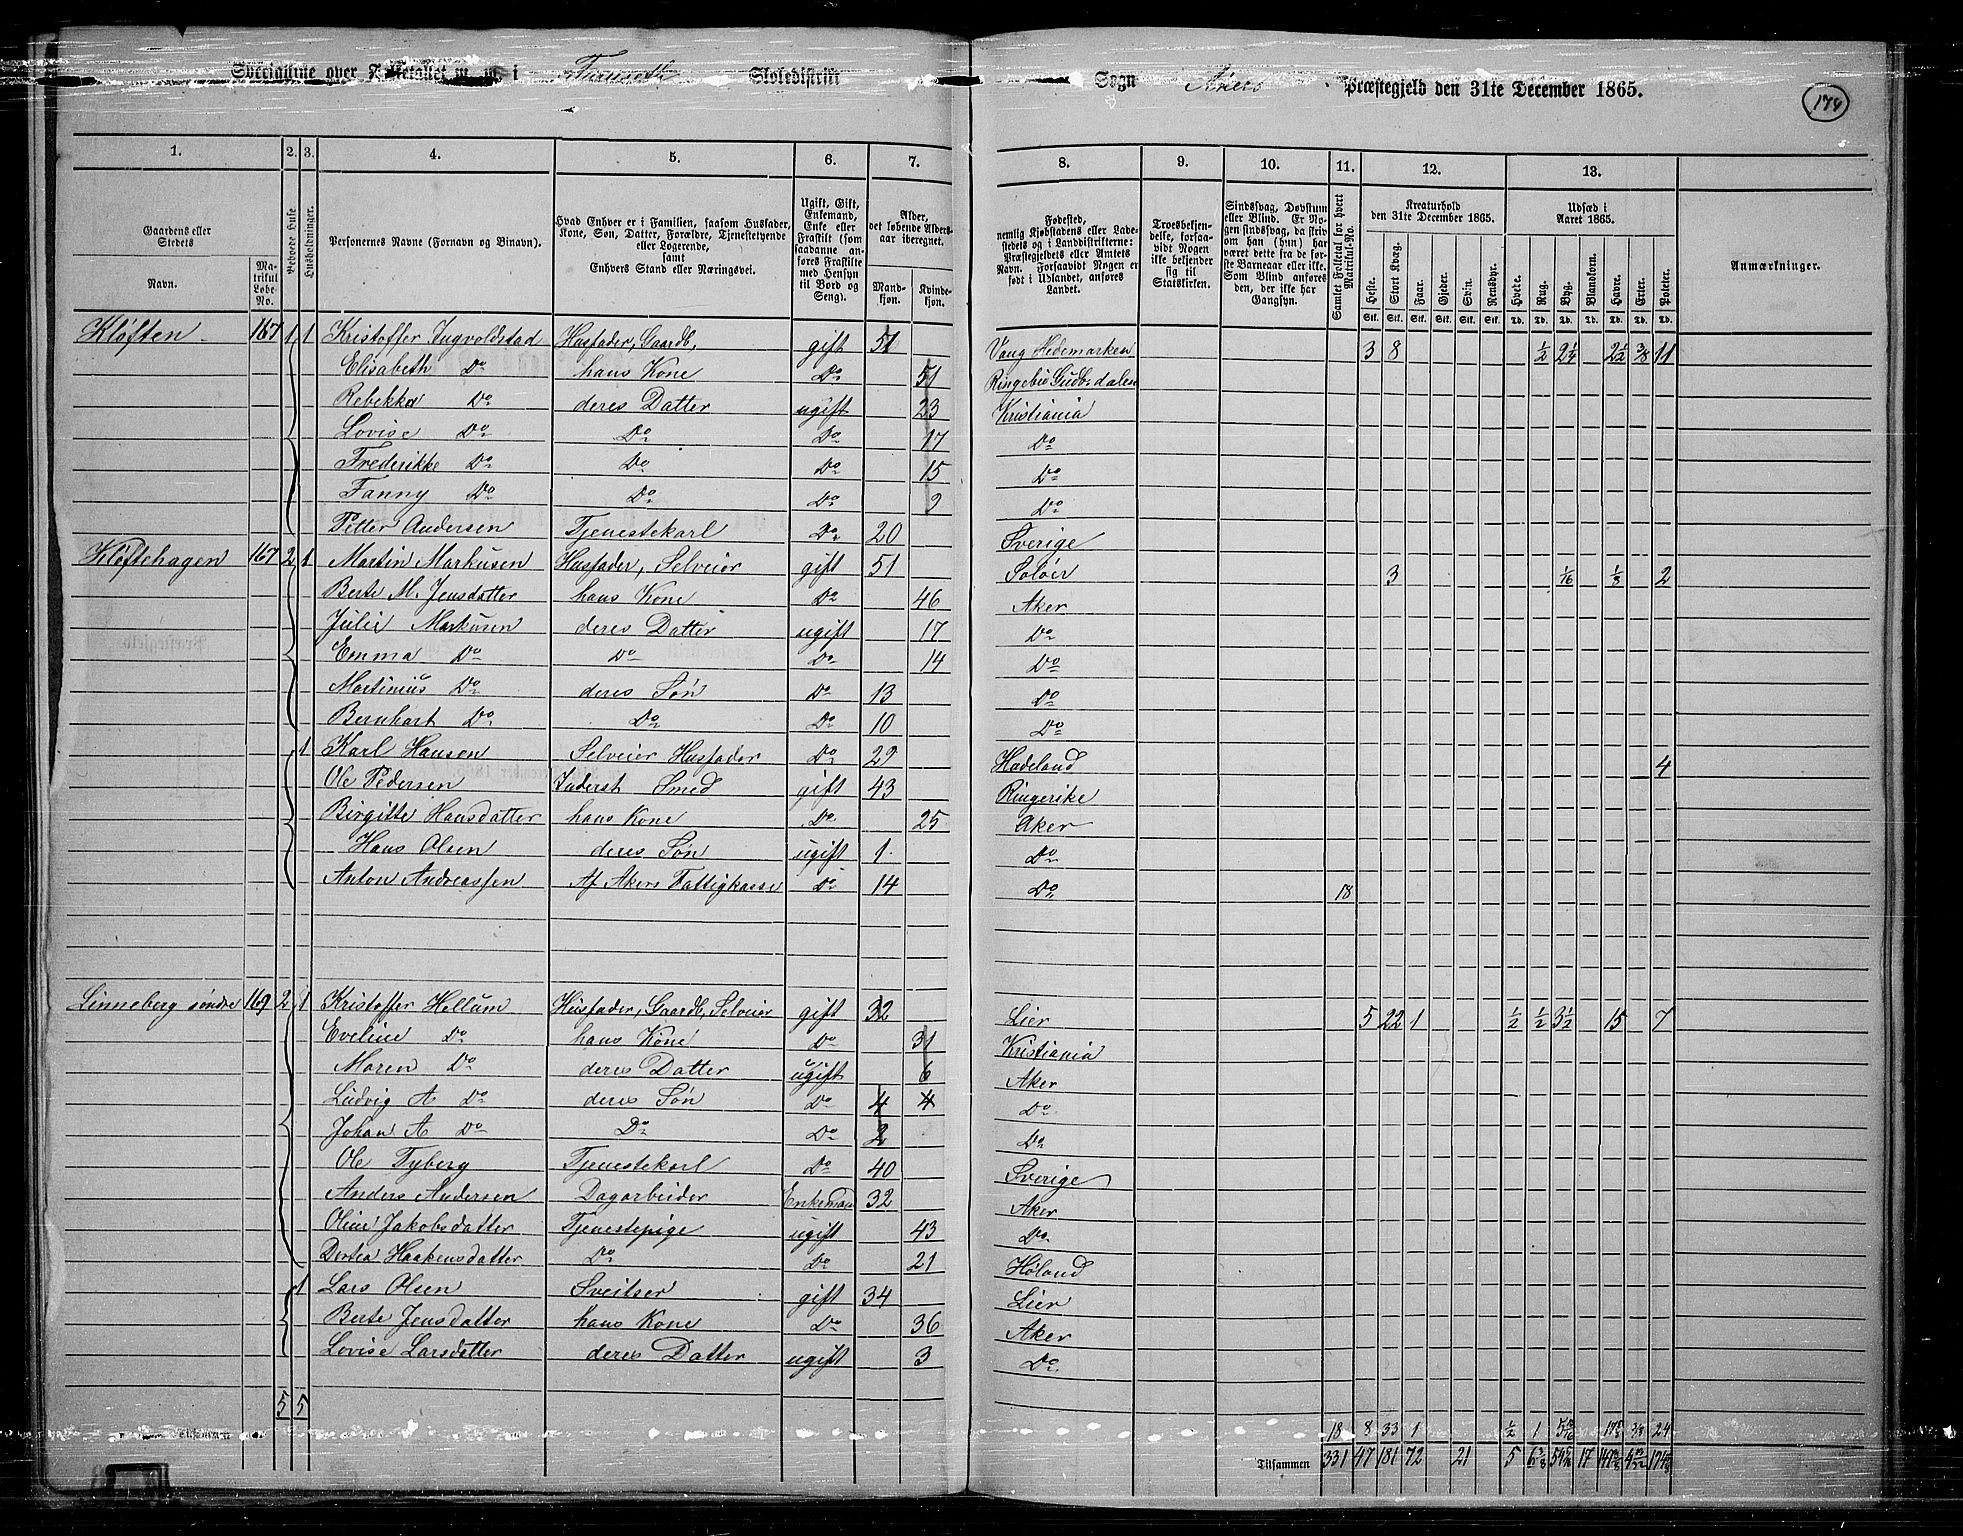 Specialliste over Folketallet m. m. i Furuseth Skoledistrikt Sogn Akers Præstegjeld den 31te December 1865. 174
1. 2. 3. 4. 5. 6. 7. 8. 9. 10. 11. 12. 13.
Gaardens eller Stedets Navn. Matrikul Løbe-No. Beboede Huse. Husholdninger. Personernes Navne (Fornavn og Binavn). Hvad Enhver er i Familien, saasom Husfader, Kone, Søn, Datter, Forældre, Tjenestetyende eller Logerende, samt Enhvers Stand eller Næringsvei. Ugift, Gift, Enkemand, Enke eller Fraskilt (som saadanne anføres Fraskilte med Hensyn til Bord og Seng). Alder, det løbende Aldersaar iberegnet. Mandkjøn. Kvindekjøn. Fødested, nemlig Kjøbstadens eller Ladestedets og i Landdistrikterne: Præstegjeldets eller Amtets Navn. Forsaavidt Nogen er født i Udlandet, anføres Landet. Troesbekjendelse, forsaavidt Nogen ikke bekjender sig til Statskirken. Sindssvag, Døvstum eller Blind. Er Nogen sindssvag, da skriv om han (hun) har været dette fra de første Barneaar eller ikke. Som Blind anføres den, der ikke har Gangsyn. Samlet Folketal for hvert Matrikul-No. Kreaturhold den 31te December 1865. Heste. Stort Kvæg. Faar. Gjeder. Svin. Rensdyr. Udsæd i Aaret 1865. Hvete. Rug. Byg. Blandkorn. Havre. Erter. Poteter. Anmærkninger.
Stk. Stk. Stk. Stk. Stk. Stk. Td. Td. Td. Td. Td. Td. Td.
Kløften 167 1 1 Kristoffer Ingvoldstad Husfader, Gaardb. gift 51 Vang Hedemarken 3 8 1/2 2 1/4 2 1/2 3/8 11
Elisabeth Do hans Kone Do 51 Ringebu Gudb.dalen
Rebekka Do deres Datter ugift 23 Kristiania
Lovise Do Do Do 17 Do
Frederikke Do Do Do 15 Do
Fanny Do Do Do 9 Do
Petter Andersen Tjenestekarl Do 20 Sverige
Kløftehagen 167 2 1 Martin Markusen Husfader, Selveier gift 51 Soløer 3 1/16 1/8 2
Berte M. Jensdatter hans Kone Do 46 Aker
Julie Markusen deres Datter ugift 17 Do
Emma Do Do Do 14 Do
Martinius Do deres Søn Do 13 Do
Bernhart Do Do Do 10 Do
1 Karl Hansen Selveier Husfader Do 29 Hadeland 4
Ole Pedersen Inderst Smed gift 43 Ringerike
Birgitte Hansdatter hans Kone Do 25 Aker
Hans Olsen deres Søn ugift 1 Do
Anton Andreassen Af Akers Fattigkasse Do 14 Do 18
Linneberg søndre 169 2 1 Kristoffer Hellum Husfader, Gaardb, Selveier gift 32 Lier 5 22 1 1/2 1/2 3 1/2 15 7
Eveline Do hans Kone Do 31 Kristiania
Maren Do deres Datter ugift 6 Aker
Ludvig A Do deres Søn Do 4 4 Do
Johan A Do Do Do 2 Do
Ole Tyberg Tjenestekarl Do 40 Sverige
Anders Andersen Dagarbeider Enkemand 32 Aker
Oline Jakobsdatter Tjenestepige ugift 43 Do
Dortea Haakensdatter Do Do 21 Høland
1 Lars Olsen Sveitser gift 34 Lier
Berte Jensdatter hans Kone Do 36 Aker
Lovise Larsdatter deres Datter ugift 3 Do
5 5
18 8 33 1 1/2 1 3/8 24
Tilsammen 331 47 181 72 21 5 17